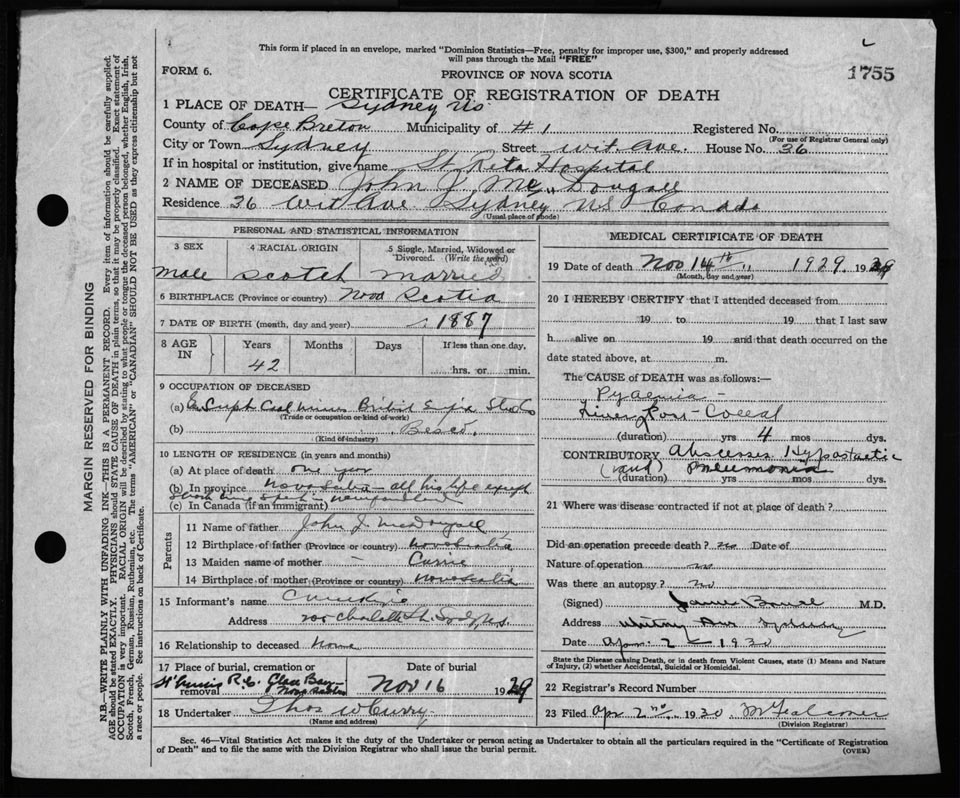 This form if placed in an envelope, marked "Dominion Statistics—Free, penalty for improper use, $300," and properly addressed
will pass through the Mail "FREE"
FORM 6.
PROVINCE OF NOVA SCOTIA
1755
CERTIFICATE OF REGISTRATION OF DEATH
1 PLACE OF DEATH— Sydney NS
County of Cape Breton Municipality of # 1 Registered No.
(For use of Registrar General only)
City or Town Sydney Street wit Ave House No. 36
If in hospital or institution, give name St Rita Hospital
2 NAME OF DECEASED John J. McDougall
Residence 36 wit Ave Sydney NS Canada
(Usual place of abode)
PERSONAL AND STATISTICAL INFORMATION
3 SEX 4 RACIAL ORIGIN 5 Single, Married, Widowed or Divorced. (Write the word)
male scotch married
6 BIRTHPLACE (Province or country) Nova Scotia
7 DATE OF BIRTH (month, day and year) 1887
8 AGE IN Years Months Days If less than one day.
42 hrs. or min.
9 OCCUPATION OF DECEASED
(a) Supt Coal mines
(Trade or occupation or kind of work)
(b) Besco.
(Kind of industry)
10 LENGTH OF RESIDENCE (in years and months)
(a) At place of death one year
(b) In province Nova Scotia - all his life except
(c) In Canada (if an immigrant)
Parents
11 Name of father John J. McDougall
12 Birthplace of father (Province or country) Nova Scotia
13 Maiden name of mother Currie
14 Birthplace of mother (Province or country) Nova Scotia
15 Informant's name
Address Charlotte St.
16 Relationship to deceased None
17 Place of burial, cremation or removal R.C. Glace Bay Nova Scotia
Date of burial
Nov 16 1929
18 Undertaker Thos W Curry
(Name and address)
MEDICAL CERTIFICATE OF DEATH
19 Date of death Nov 14th 1929. 1929
(Month, day and year)
20 I HEREBY CERTIFY that I attended deceased from
19 to 19 that I last saw
h alive on 19 and that death occurred on the
date stated above, at m.
The CAUSE of DEATH was as follows:
Pyaemia -
(duration) yrs 4 mos dys.
CONTRIBUTORY Abscesses Hypostatic
(and) Pneumonia
(duration) yrs mos dys.
21 Where was disease contracted if not at place of death?
Did an operation precede death? no Date of
Nature of operation no
Was there an autopsy? no
(Signed) James M.D.
Address Whitney Ave Sydney
Date Apr 2 1930
State the Disease causing Death, or in death from Violent Causes, state (1) Means and Nature
of Injury, (2) whether Accidental, Suicidal or Homicidal.
22 Registrar's Record Number
23 Filed Apr 2nd, 1930
(Division Registrar)
Sec. 46—Vital Statistics Act makes it the duty of the Undertaker or person acting as Undertaker to obtain all the particulars required in the "Certificate of Registration
of Death" and to file the same with the Division Registrar who shall issue the burial permit.
(OVER)
MARGIN RESERVED FOR BINDING
N.B.—WRITE PLAINLY WITH UNFADING INK—THIS IS A PERMANENT RECORD. Every item of information should be carefully supplied.
AGE should be stated EXACTLY. PHYSICIANS should STATE CAUSE OF DEATH in plain terms, so that it may be properly classified. Exact statement of
OCCUPATION is very important. RACIAL ORIGIN will be described by stating to what people or tongue the deceased person belonged, whether English, Irish,
Scotch, French, German, Russian, Ruthenian, etc. The terms "AMERICAN" or "CANADIAN" SHOULD NOT BE USED as they express citizenship but not
a race or people. See instructions on back of Certificate.